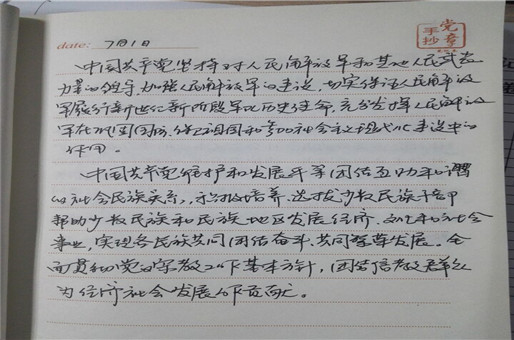 date: 7月1日
党章
手抄
中国共产党坚持对人民解放军和其他人民武装
力量的领导,加强人民解放军的建设,切实保证人民解放
军履行新世纪新阶段军队历史使命,充分发挥人民解放
军在巩固国防、保卫祖国和参加社会主义现代化建设中的
作用。
中国共产党维护和发展平等团结互助和谐
的社会主义民族关系,积极培养、选拔少数民族干部
帮助少数民族和民族地区发展经济、文化和社会
事业,实现各民族共同团结奋斗、共同繁荣发展。全
面贯彻党的宗教工作基本方针,团结信教群众
为经济社会发展作贡献。